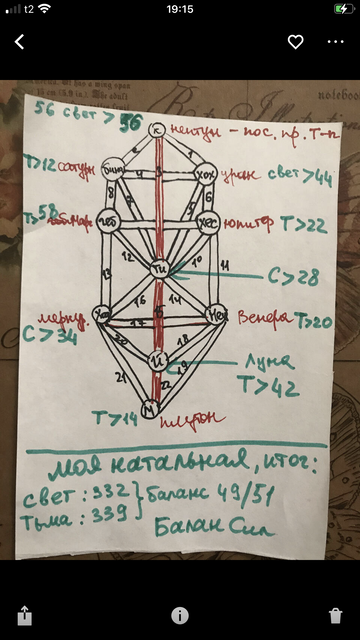 t2
19:15
notebook
56 свет > 56
К
нептун - пос. пр. Т-п
2
1
Т>12 сатурн
Бин
4
3
Хох
уран свет >44
8
7
5
6
Т>58
мар
Гев
Хес
юпитер Т>22
12
10
Ти
13
11
С>28
16
14
15
мерку.
С>34
Ход
17
Нец
Венера Т>20
20
18
Й
19
Луна
Т>42
21
22
Т>14
М
плутон
моя натальная, итог:
свет : 332
Тьма : 339
баланс 49/51
Балан Сил